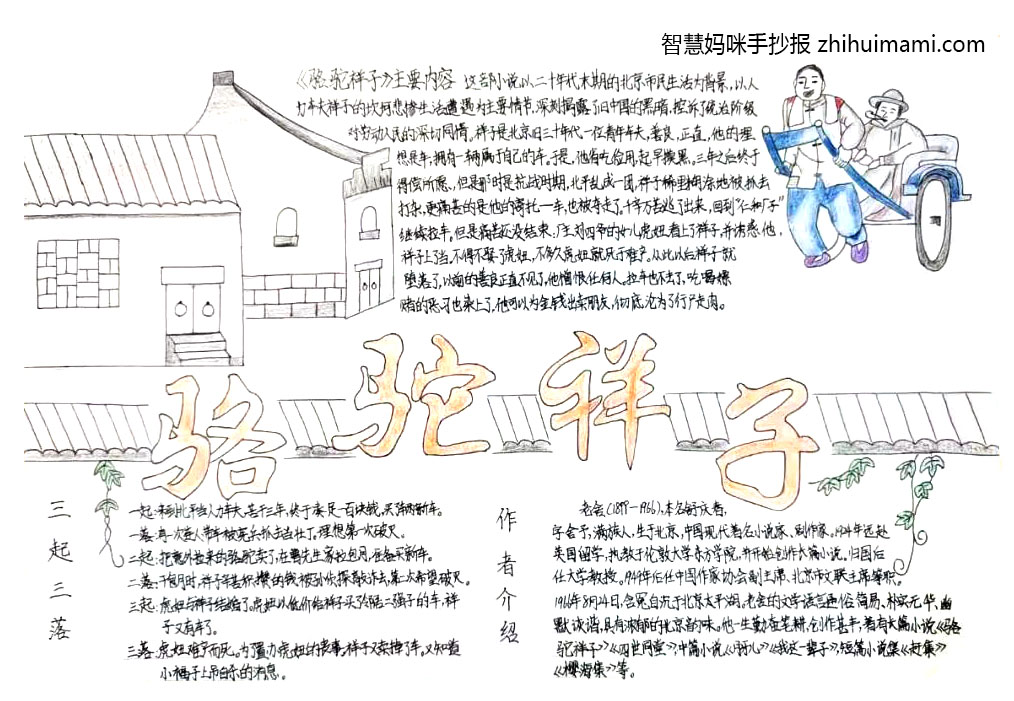 智慧妈咪手抄报 zhihuimami.com
《骆驼祥子》主要内容 这部小说,以二十年代末期的北京市民生活为背景,以人
力车夫祥子的坎坷悲惨生活遭遇为主要情节,深刻揭露了旧中国的黑暗,控诉了统治阶级
对劳动人民的深切同情。祥子是北京旧三十年代,一位青年车夫,善良、正直,他的理
想是车,拥有一辆属于自己的车。于是,他省吃俭用,起早摸黑。三年之后终于
得偿所愿、但是那时是抗战时期,北平乱成一团,祥子稀里糊涂地被抓去
打杂,更痛苦的是他的寄托一车,也被夺走了。千辛万苦逃了出来,回到"仁和厂子"
继续拉车。但是痛苦还没结束,厂主刘四爷的女儿虎妞看上了祥子,并诱惑他,
祥子上了当,不得不娶了虎妞,不多久虎妞就死于难产。从此以后祥子就
堕落了,以前的善良正直不见了,他憎恨任何人,拉车也不去了,吃喝嫖
赌的恶习也染上了,他可以为金钱出卖朋友,彻底沦为了行尸走肉。
骆驼祥子
三起三落
一起:来到北平当人力车夫,苦干三年,终于凑足一百块钱,买了辆新车。
一落:有一次连人带车被宪兵抓去当壮丁。理想第一次破灭。
二起:把意外拉来的骆驼卖了,在曹先生家拉包月,准备买新车。
二落:干包月时,祥子辛苦积攒的钱被孙侦探敲诈去,第二次希望破灭。
三起:虎妞与祥子结婚了。虎妞以低价给祥子买了邻居二强子的车,祥
子又有车了。
三落:虎妞难产而死。为了置办虎妞的丧事,祥子又卖掉了车。又知道
小福子上吊自杀的消息。
作者介绍
老舍(1899-1966),本名舒庆春,
字舍予,满族人,生于北京,中国现代著名小说家、剧作家。1924年远赴
英国留学,执教于伦敦大学东方学院,并开始创作长篇小说,归国后
任大学教授。1949年后任中国作家协会副主席、北京市文联主席等职。
1966年8月24日,含冤自沉于北京太平湖。老舍的文学语言通俗简易,朴实无华,幽
默诙谐,具有浓郁的北京韵味。他一生勤奋笔耕,创作甚丰,著有长篇小说《骆
驼祥子》《四世同堂》,中篇小说《月牙儿》《我这一辈子》,短篇小说集《赶集》
《樱海集》等。